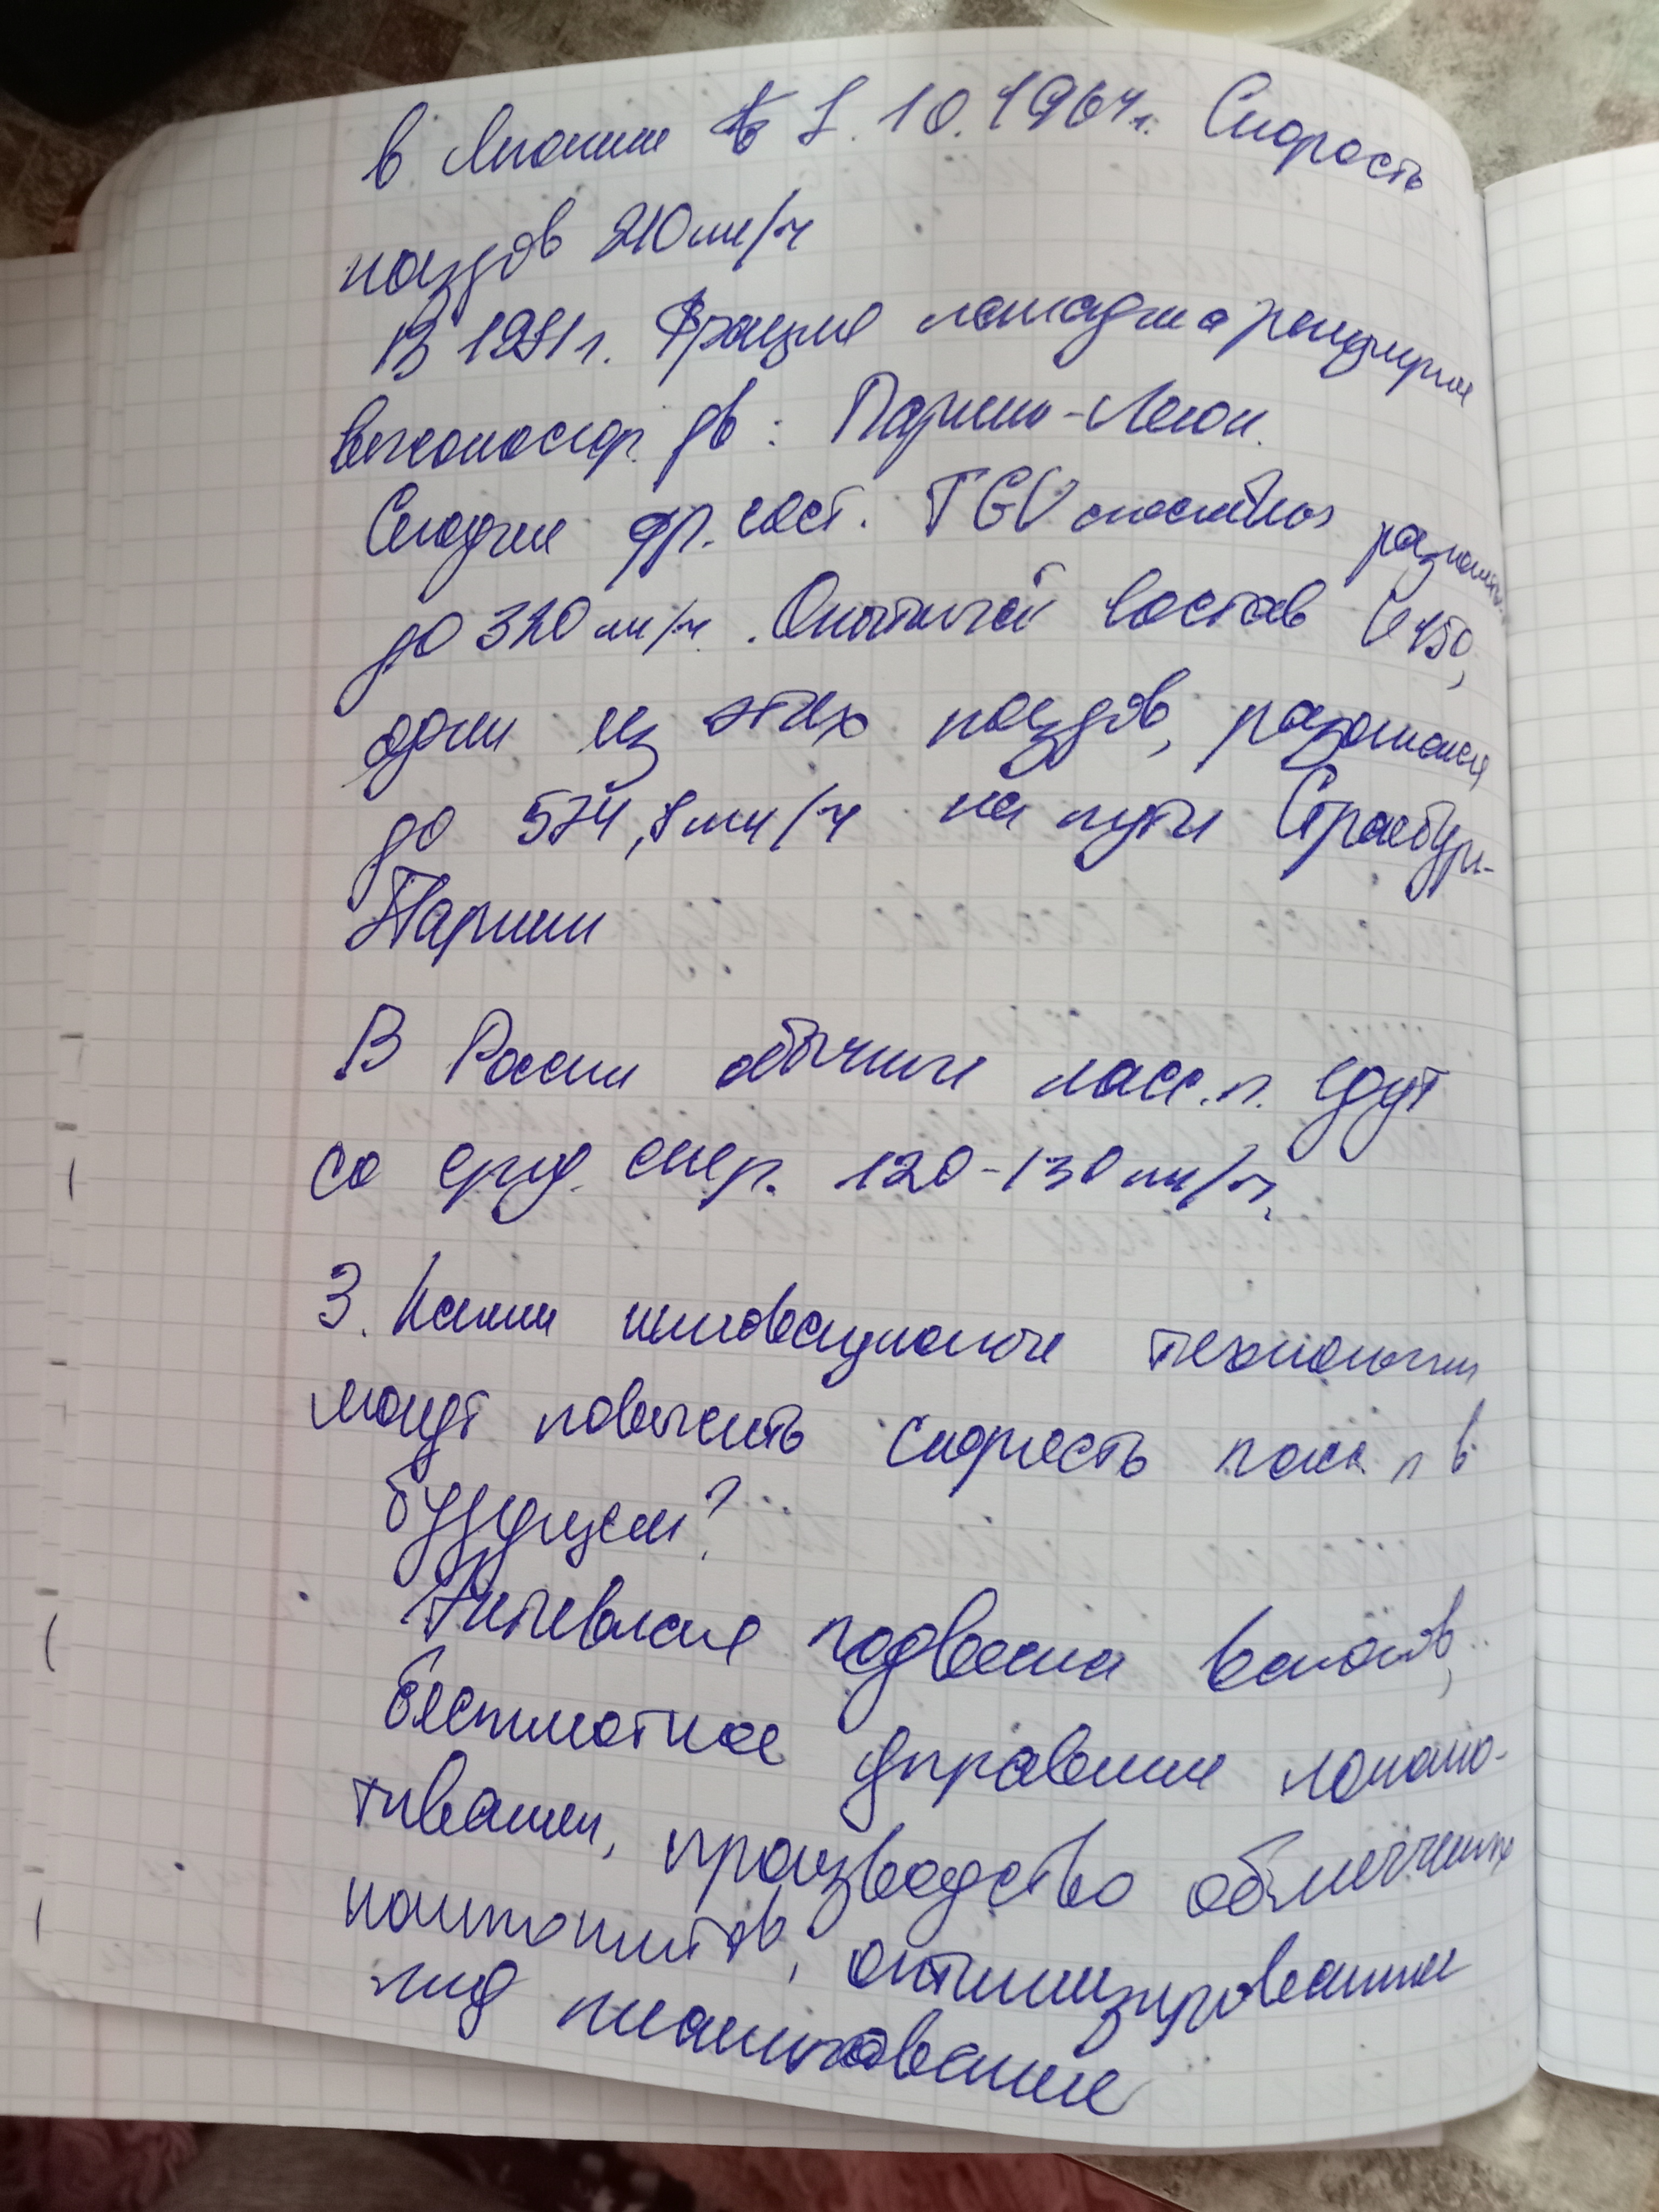 в Японии в 1.10.1964г. Скорость
поездов 210 км/ч
В 1981г. Франция наладила регулярное
высокоскор. дв: Париж-Лион.
Сегодня фр. сост. TGV способны разгонять.
до 320 км/ч. Опытный состав V150,
один из этих поездов, разогнался
до 574,8 км/ч на пути Страсбург-
Париж
В России обычные пасс. п. едут
со сред. скор. 120-130 км/ч.
3. Какие инновационные технологии
могут повысить скорость пасс. п в
будущем?
подвеска вагонов,
беспилотное управление локомо-
тивами, производство облегченных
композитов, оптимизирование
жд планирование